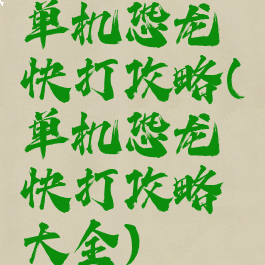 单机恐龙
快打攻略(
单机恐龙
快打攻略
大全)